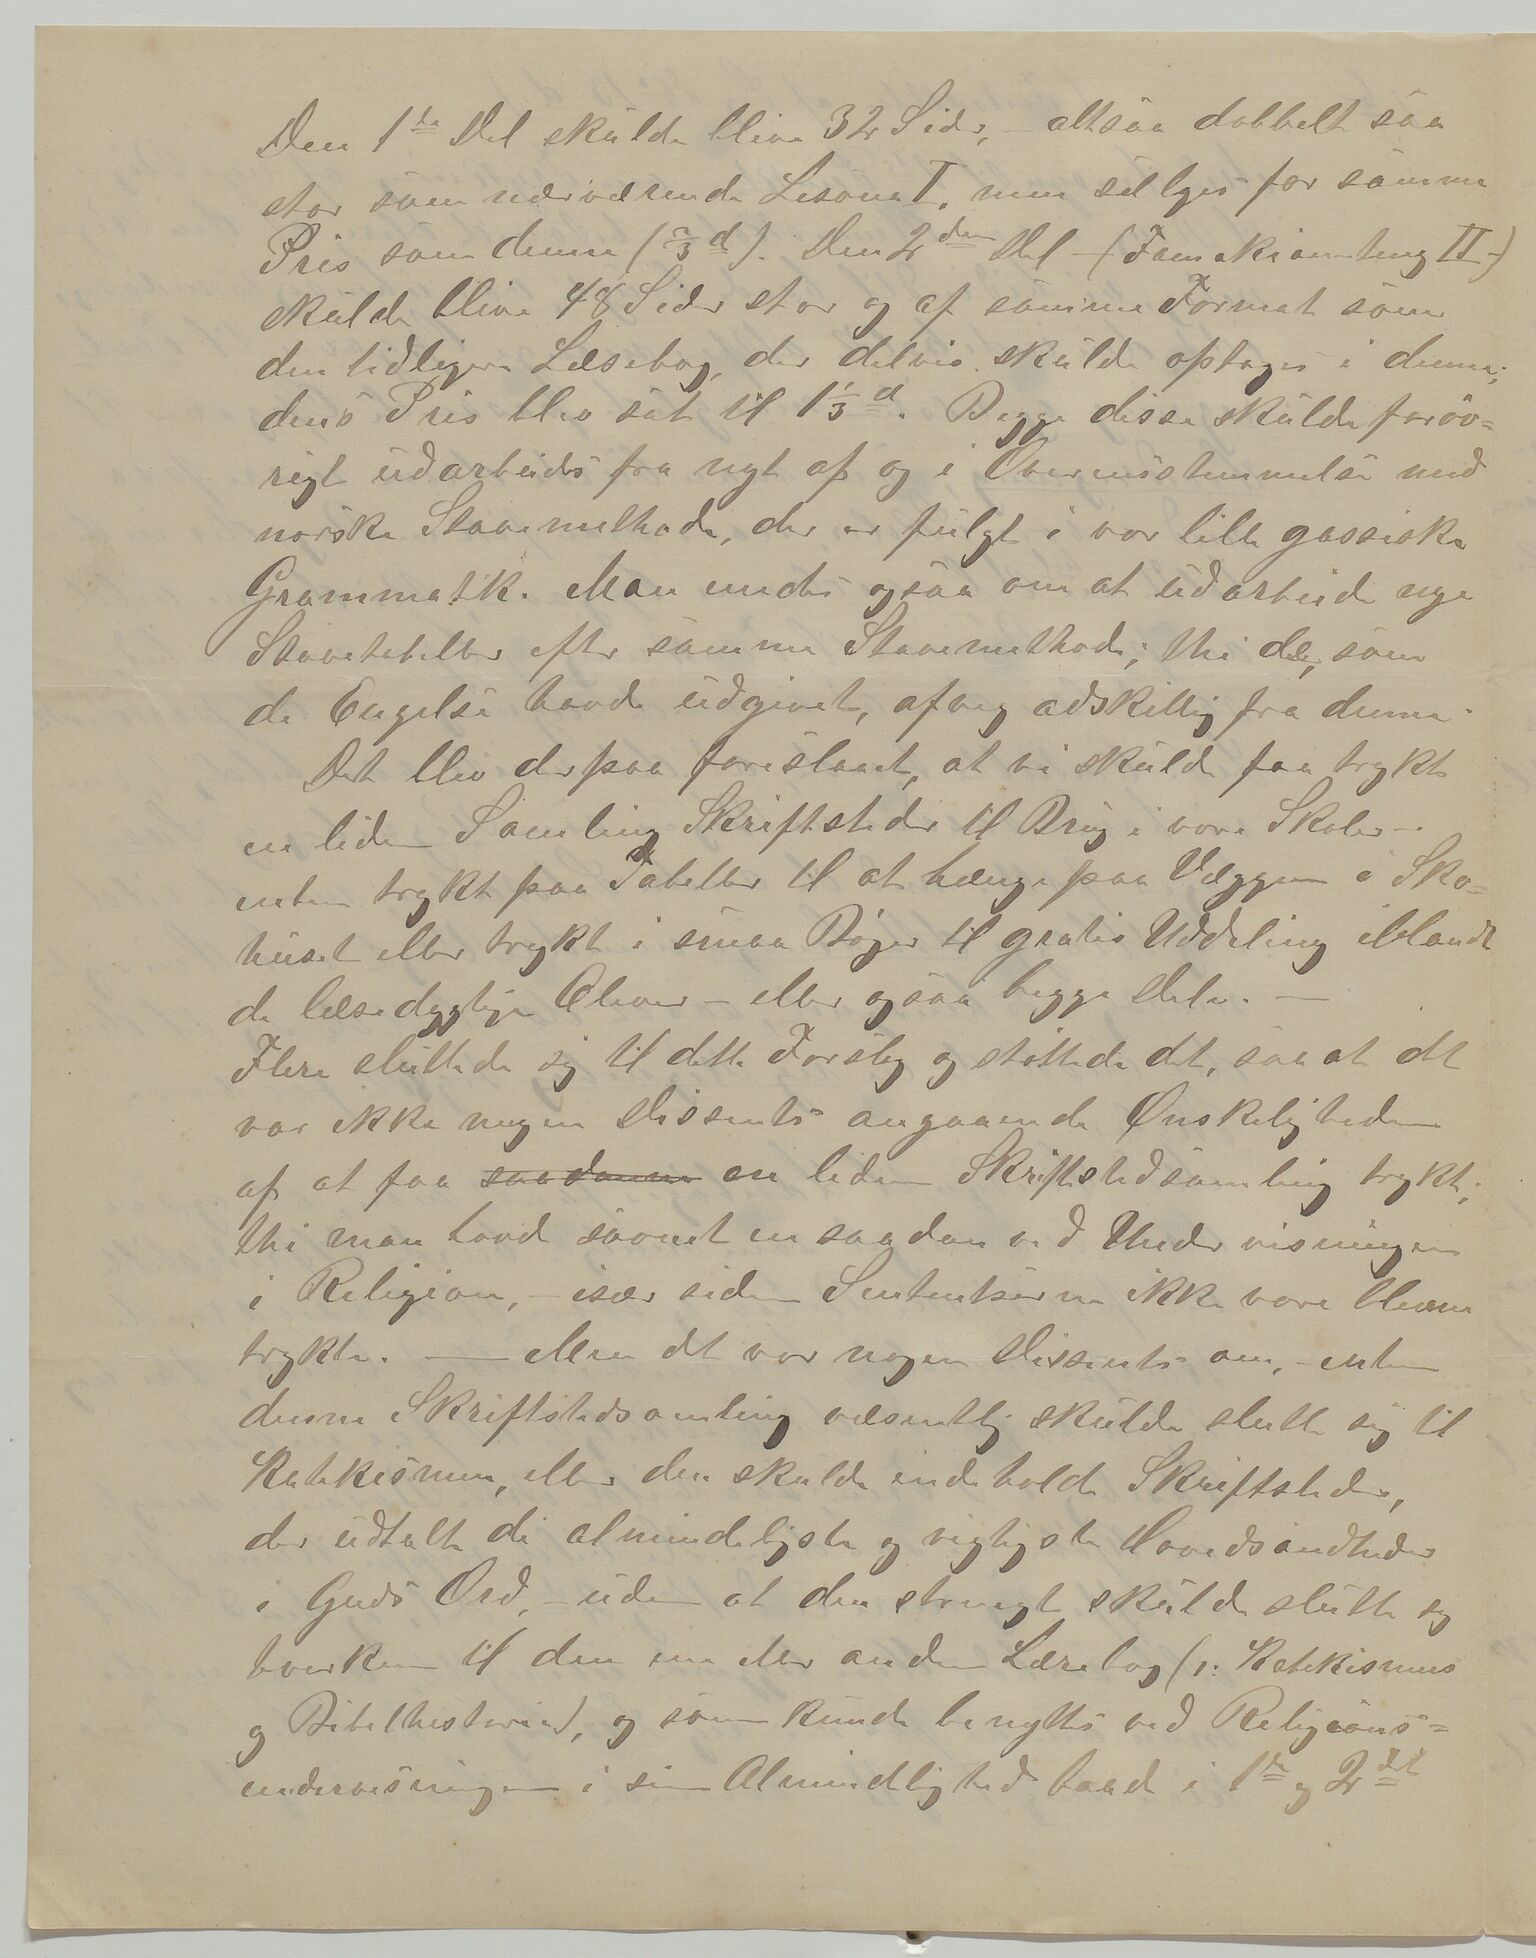 Den 1ste Del skulde blive 32 Sider, – altsaa dobbelt saa
stor som nærværende Lesona I, men sælges for samme
Pris som denne (2/3 d). Den 2den Del – (Famakianteny II –)
skulde blive 48 Sider stor og af samme Format som
den tidligere Læsebog, der delvis skulde optages i denne;
dens Pris blev sat til 1 1/3 d. Begge disse skulde forøv=
rigt udarbeides fra nyt af og i Overensstemmelse med
norske Stavemethode, der er fulgt i vor lille gassiske
Grammatik. Man enedes ogsaa om at udarbeide nye
Stavetabeller efter samme Stavemethode; thi de, som
de Engelske havde udgivet, afveg adskillig fra denne.
Det blev derpaa foreslaaet, at vi skulde faa trykt
en liden Samling Skriftsteder til Brug i vore Skoler –
enten trykt paa Tabeller til at hænge paa Væggene i Sko=
huset eller trykt i smaa Bøger til gratis Uddeling iblandt
de læsedygtige Elever – eller ogsaa begge Dele. –
Flere sluttede sig til dette Forslag og støttede det, saa at det
var ikke nogen Dissents angaaende Ønskeligheden
af at faa saadanne en liden Skriftstedsamling trykt;
thi man havde savnet en saadan ved Undervisningen
i Religion, – især siden Sententserne ikke vare blevne
trykte. — Men det var nogen Dissents om, – enten
denne Skriftstedsamling væsentlig skulde slutte sig til
Katekismen, eller den skulde indeholde Skriftsteder,
der udtalte de almindeligste og vigtigste Hovedsandheder
i Guds Ord, – uden at den strengt skulde slutte sig
hverken til den ene eller anden Lærebog (ɔ: Katekismus
og Bibelhistorie), og som kunde benyttes ved Religions=
undervisningen i sin Almindelighed baade i 1ste og 2det